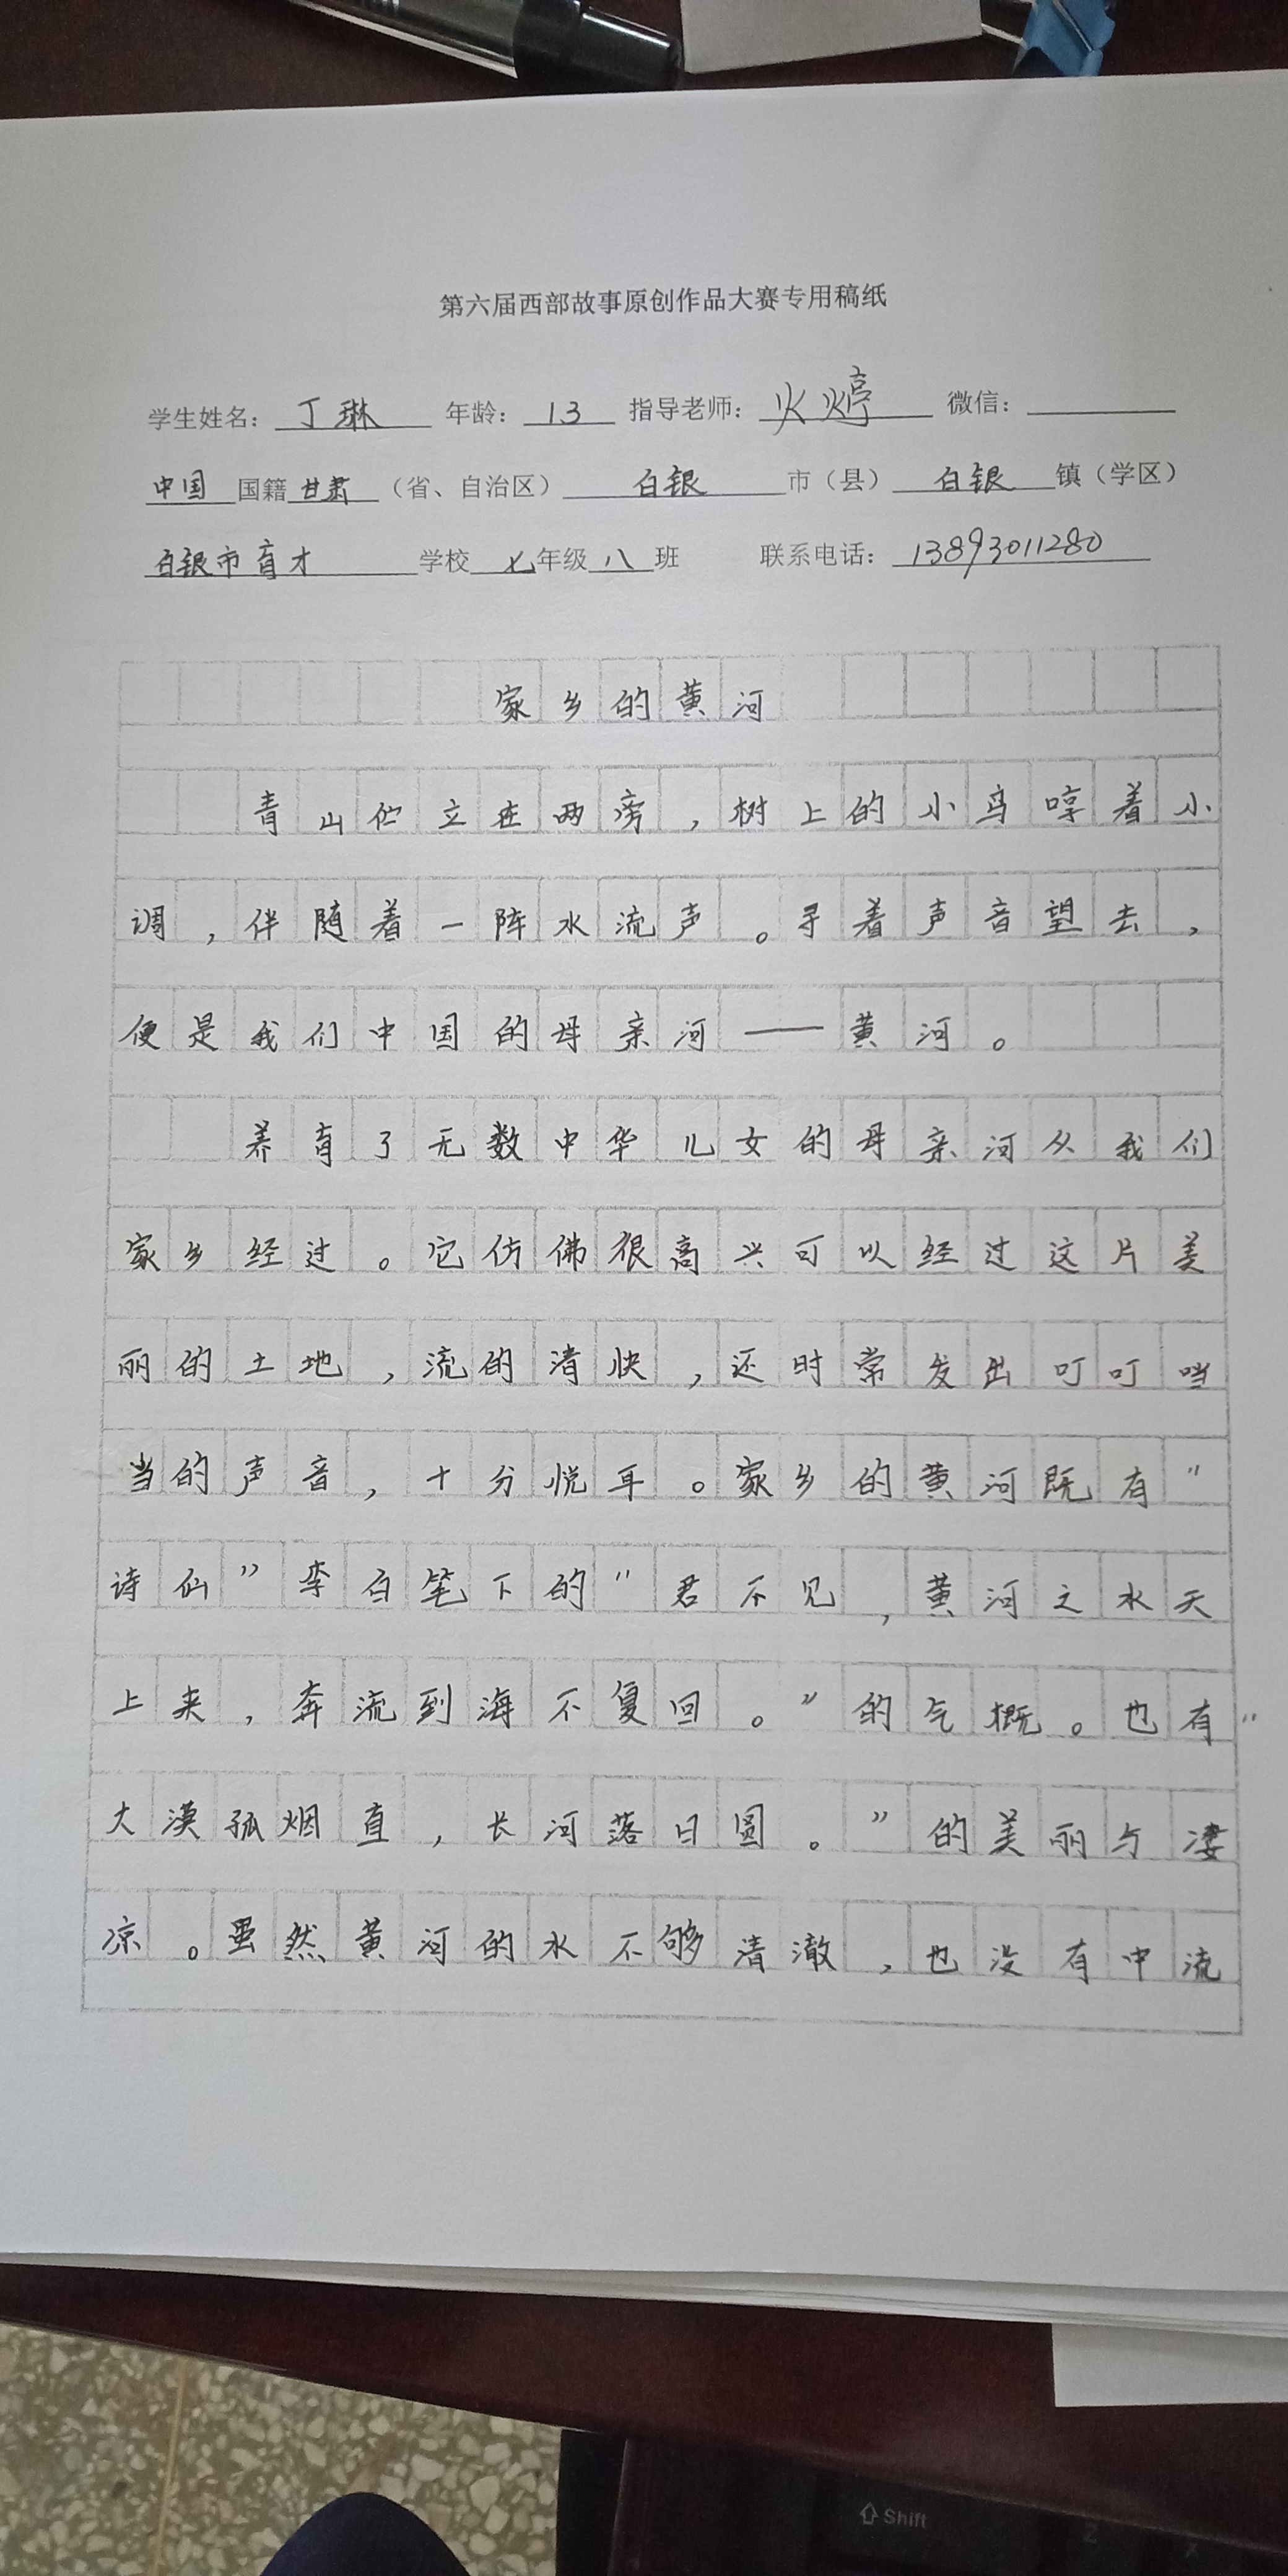 第六届西部故事原创作品大赛专用稿纸
学生姓名：丁琳 年龄：13 指导老师：火婷 微信：
中国 国籍 甘肃（省、自治区） 白银 市（县） 白银 镇（学区）
白银市育才 学校 七年级 八 班 联系电话：13893011280
家乡的黄河
青山伫立在两旁，树上的小鸟哼着小
调，伴随着一阵水流声。寻着声音望去，
便是我们中国的母亲河——黄河。
养育了无数中华儿女的母亲河从我们
家乡经过。它仿佛很高兴可以经过这片美
丽的土地，流的清快，还时常发出叮叮当
当的声音，十分悦耳。家乡的黄河既有“
诗仙”李白笔下的“君不见，黄河之水天
上来，奔流到海不复回。”的气概。也有“
大漠孤烟直，长河落日圆。”的美丽与凄
凉。虽然黄河的水不够清澈，也没有中流
Shift
Z
X